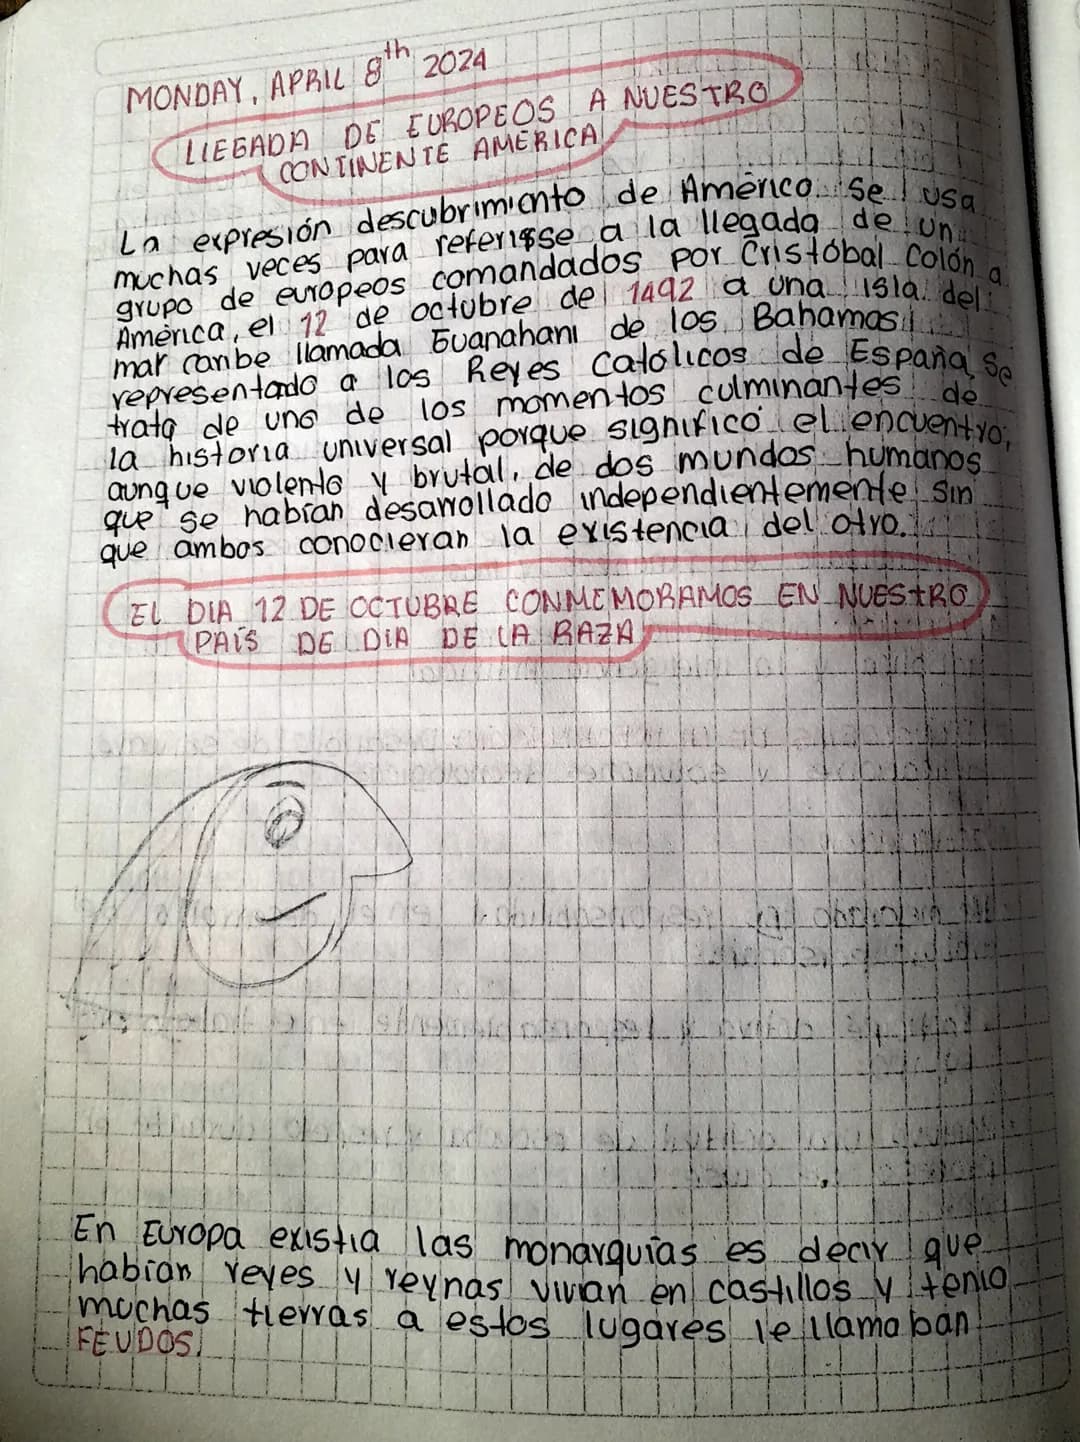 MONDAY, APRIL 8th 2024
LLEGADA DE EUROPEOS A NUESTRO
CONTINENTE AMERICA
La expresión descubrimiento de América se usa
muchas veces para referirse a la llegada de un
grupo de europeos comandados por Cristóbal Colón a
América, el 12 de octubre de 1492 a una isla del
mar caribe llamada Guanahani de los Bahamas
representado a los Reyes Católicos de España, Se
trata de uno de los momentos culminantes de
la historia universal porque significó el encuentro,
aunque violento y brutal, de dos mundos humanos
que se habían desarrollado independientemente sin
que ambos conocieran la existencia del otro.
EL DIA 12 DE OCTUBRE CONMEMORAMOS EN NUESTRO
PAÍS DE DIA DE LA RAZA
En Europa existia las monarquías es decir que
habían reyes y reynas vivian en castillos y tenio
muchas tierras a estos lugares le llamaban
FEUDOS.